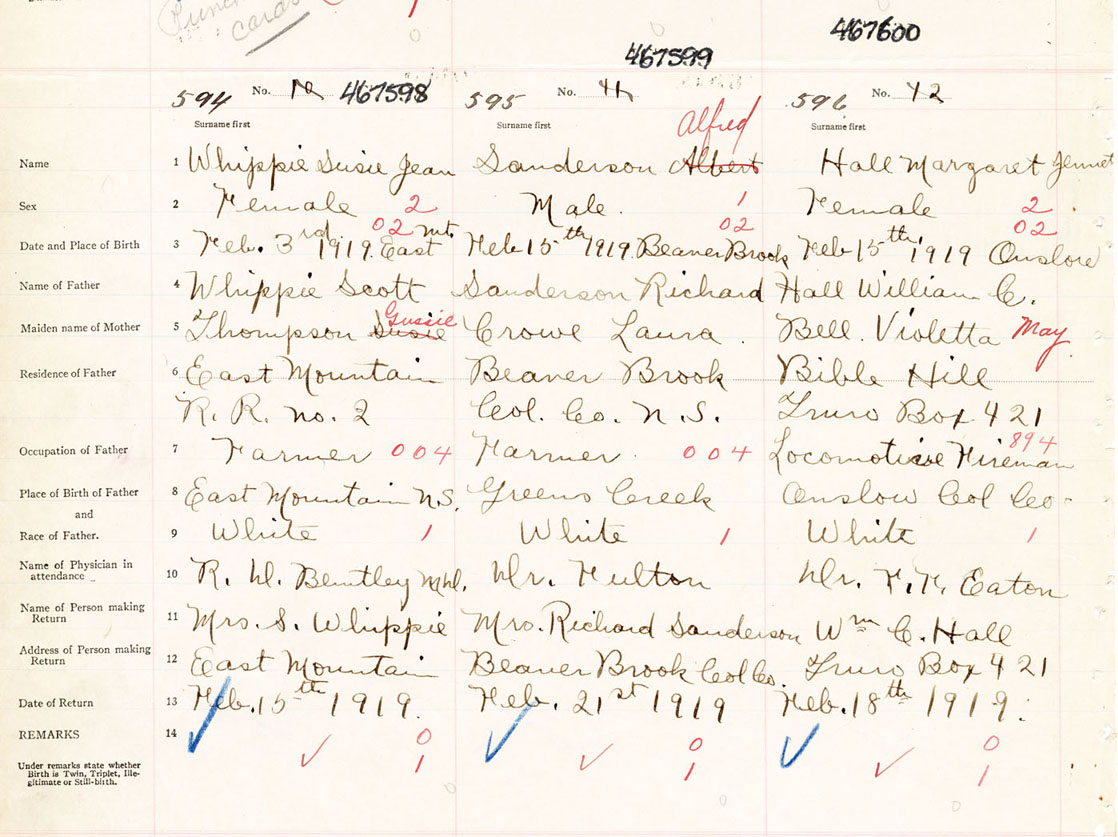 Punch
cards
1
0
467600
467599
594 No. 10 467598 595 No. 41 596 No. 42
Surname first Surname first Alfred Surname first
Name 1 Whippie Susie Jean Sanderson Albert Hall Margaret Jennet
Sex 2 Female 2 Male. 1 Female 2
02 02 02
Date and Place of Birth 3 Feb. 3rd 1919. East Mt. Feb 15th 1919. Beaver Brook Feb 15th 1919 Onslow
Name of Father 4 Whippie Scott Sanderson Richard Hall William C.
Gussie
Maiden name of Mother 5 Thompson Susie Crowe Laura. Bell. Violetta May
Residence of Father 6 East Mountain Beaver Brook Bible Hill
R. R. no. 2 Col. Co. N.S. Truro Box 421
Occupation of Father 7 Farmer 004 Farmer. 004 Locomotive Fireman 894
Place of Birth of Father 8 East Mountain N.S. Greens Creek Onslow Col Co.
and
Race of Father. 9 White 1 White 1 White 1
Name of Physician in
attendance 10 R. H. Bentley M.D. Dr. Fulton Dr. F. F. Eaton
Name of Person making
Return 11 Mrs. S. Whippie Mrs. Richard Sanderson Wm C. Hall
Address of Person making
Return 12 East Mountain Beaver Brook Col Co. Truro Box 421
Date of Return 13 Feb. 15th 1919. Feb. 21st 1919 Feb. 18th 1919.
REMARKS 14 0 0 0
Under remarks state whether
Birth is Twin, Triplet, Ille-
gitimate or Still-birth.
1 1 1